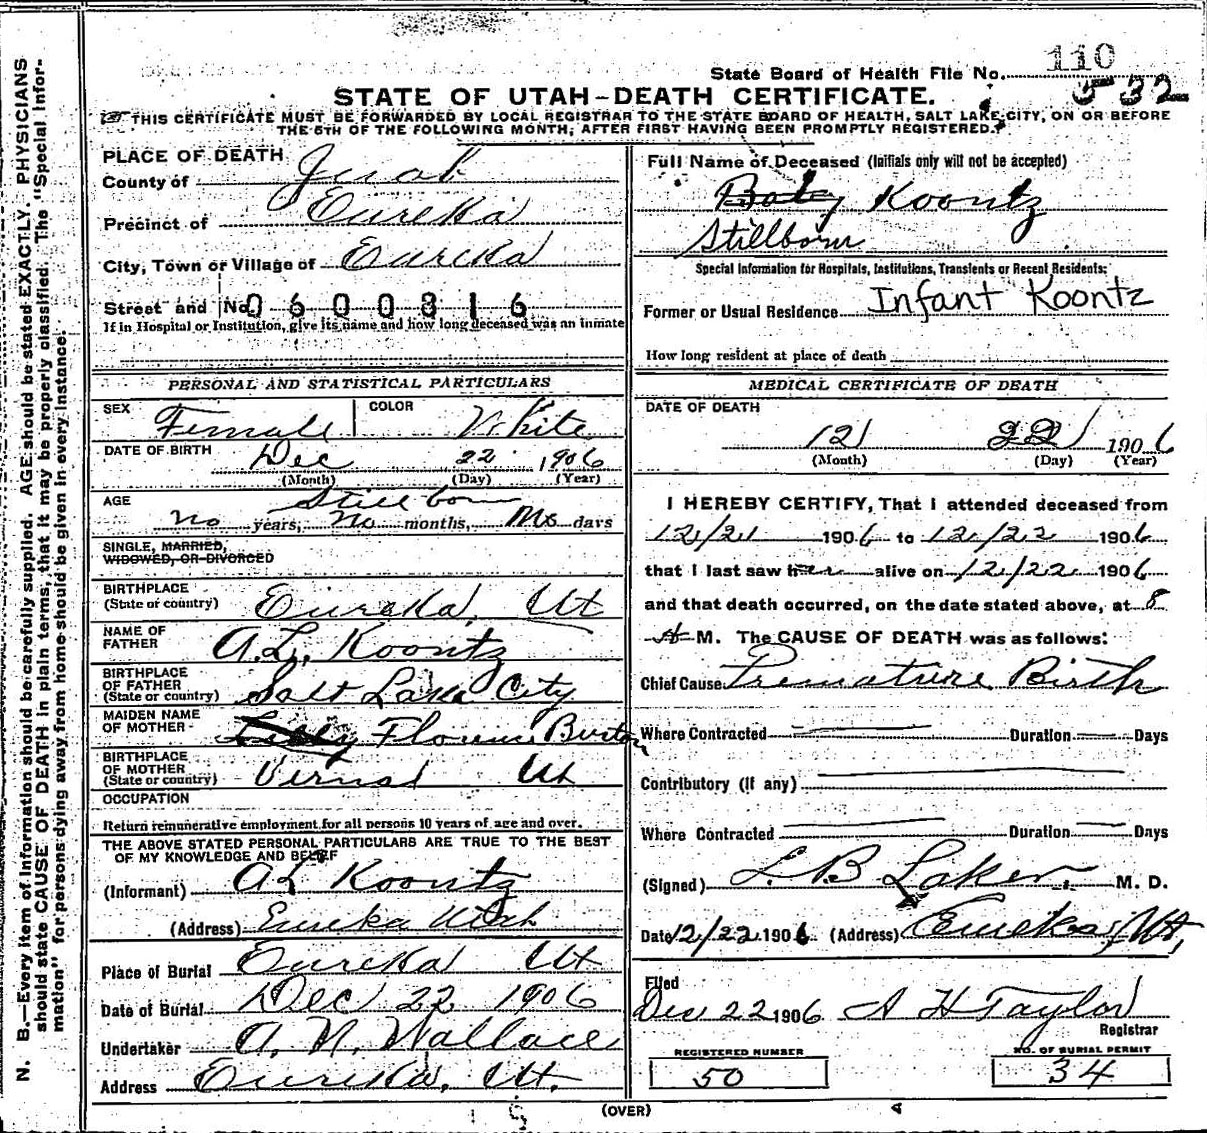 110
State Board of Health File No. 532
STATE OF UTAH-DEATH CERTIFICATE.
THIS CERTIFICATE MUST BE FORWARDED BY LOCAL REGISTRAR TO THE STATE BOARD OF HEALTH, SALT LAKE CITY, ON OR BEFORE
THE 5TH OF THE FOLLOWING MONTH, AFTER FIRST HAVING BEEN PROMPTLY REGISTERED.
N. B.—Every item of information should be carefully supplied. AGE should be stated EXACTLY. PHYSICIANS
should state CAUSE OF DEATH in plain terms, that it may be properly classified. The "Special Infor-
mation" for persons dying away from home should be given in every instance.
PLACE OF DEATH
County of Juab
Precinct of Eureka
City, Town or Village of Eureka
Street and No. 0600816
If in Hospital or Institution, give its name and how long deceased was an inmate
PERSONAL AND STATISTICAL PARTICULARS
SEX Female COLOR White
DATE OF BIRTH Dec 22 1906
(Month) (Day) (Year)
AGE Stillborn
No years, No months, days
SINGLE, MARRIED,
WIDOWED, OR DIVORCED
BIRTHPLACE
(State or country) Eureka, Ut
NAME OF
FATHER A.L. Koontz
BIRTHPLACE
OF FATHER
(State or country) Salt Lake City
MAIDEN NAME
OF MOTHER Florence Burton
BIRTHPLACE
OF MOTHER
(State or country) Vernal Ut
OCCUPATION
Return remunerative employment for all persons 10 years of age and over.
THE ABOVE STATED PERSONAL PARTICULARS ARE TRUE TO THE BEST
OF MY KNOWLEDGE AND BELIEF
(Informant) A L Koontz
(Address) Eureka Utah
Place of Burial Eureka Ut
Date of Burial Dec 22 1906
Undertaker A. N. Wallace
Address Eureka, Ut.
Full Name of Deceased (Initials only will not be accepted)
Baby Koontz
Stillborn
Special Information for Hospitals, Institutions, Transients or Recent Residents:
Infant Koontz
Former or Usual Residence
How long resident at place of death
MEDICAL CERTIFICATE OF DEATH
DATE OF DEATH
12 22 1906
(Month) (Day) (Year)
I HEREBY CERTIFY, That I attended deceased from
12/21 1906 to 12/22 1906
that I last saw her alive on 12/22 1906
and that death occurred, on the date stated above, at 8
A M. The CAUSE OF DEATH was as follows:
Chief Cause Premature Birth
Where Contracted Duration Days
Contributory (if any)
Where Contracted Duration Days
(Signed) L. B. Laker M. D.
Date 12/22 1906 (Address) Eureka, Ut,
Filed
Dec 22 1906 A H Taylor
Registrar
REGISTERED NUMBER NO. OF BURIAL PERMIT
50 34
(OVER)